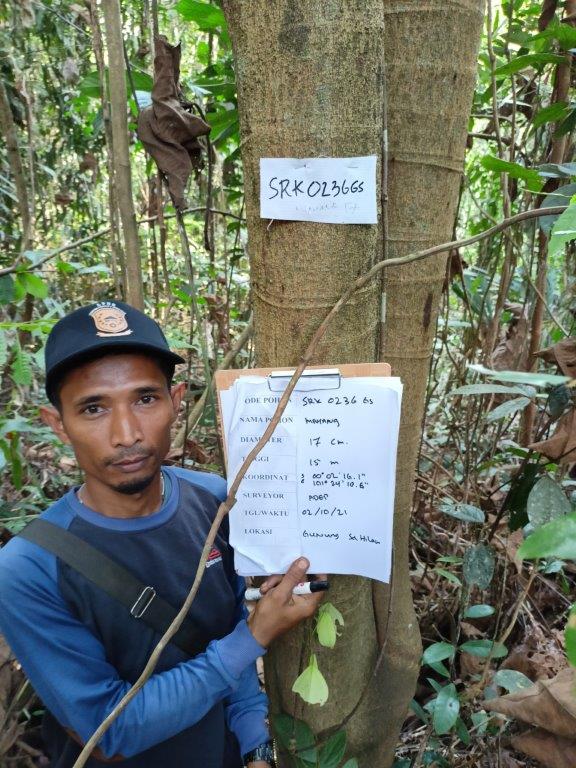 SRK 0236 GS
ODE POHON SRK 0236 GS
NAMA POHON MAHANG
DIAMETER 17 cm.
TINGGI 15 m
KOORDINAT S 00° 02' 16.1"
E 101° 24' 10.6"
SURVEYOR ADEP
TGL/WAKTU 02/10/21
LOKASI Gunung Sahilan